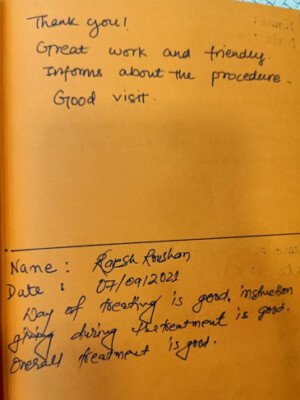 Thank you!
Great work and friendly.
Informs about the procedure.
Good visit.
Name : Roushan
Date : 07/09/2021
Way of treating is good, instruction
giving during the treatment is good.
Overall treatment is good.